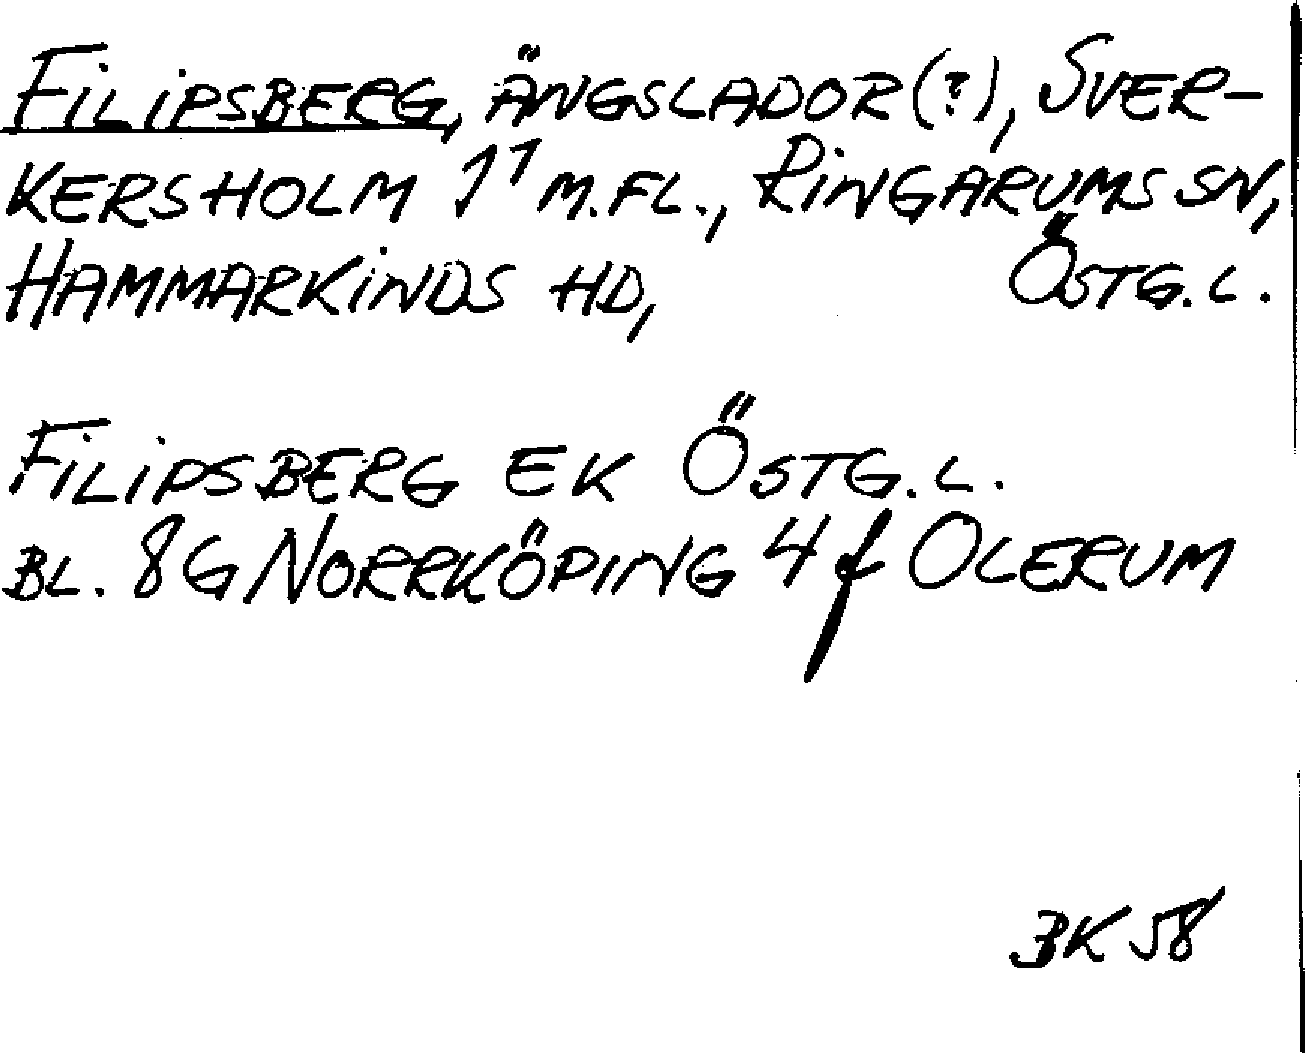 FILIPSBERG, ÄNGSLADOR (?), SVER-
KERSHOLM 1¹ M.FL., RINGARUMS SN,
HAMMARKINDS HD, ÖSTG. L.
FILIPSBERG EK ÖSTG. L.
BL. 8G NORRKÖPING 4 f OLERUM
BK 58